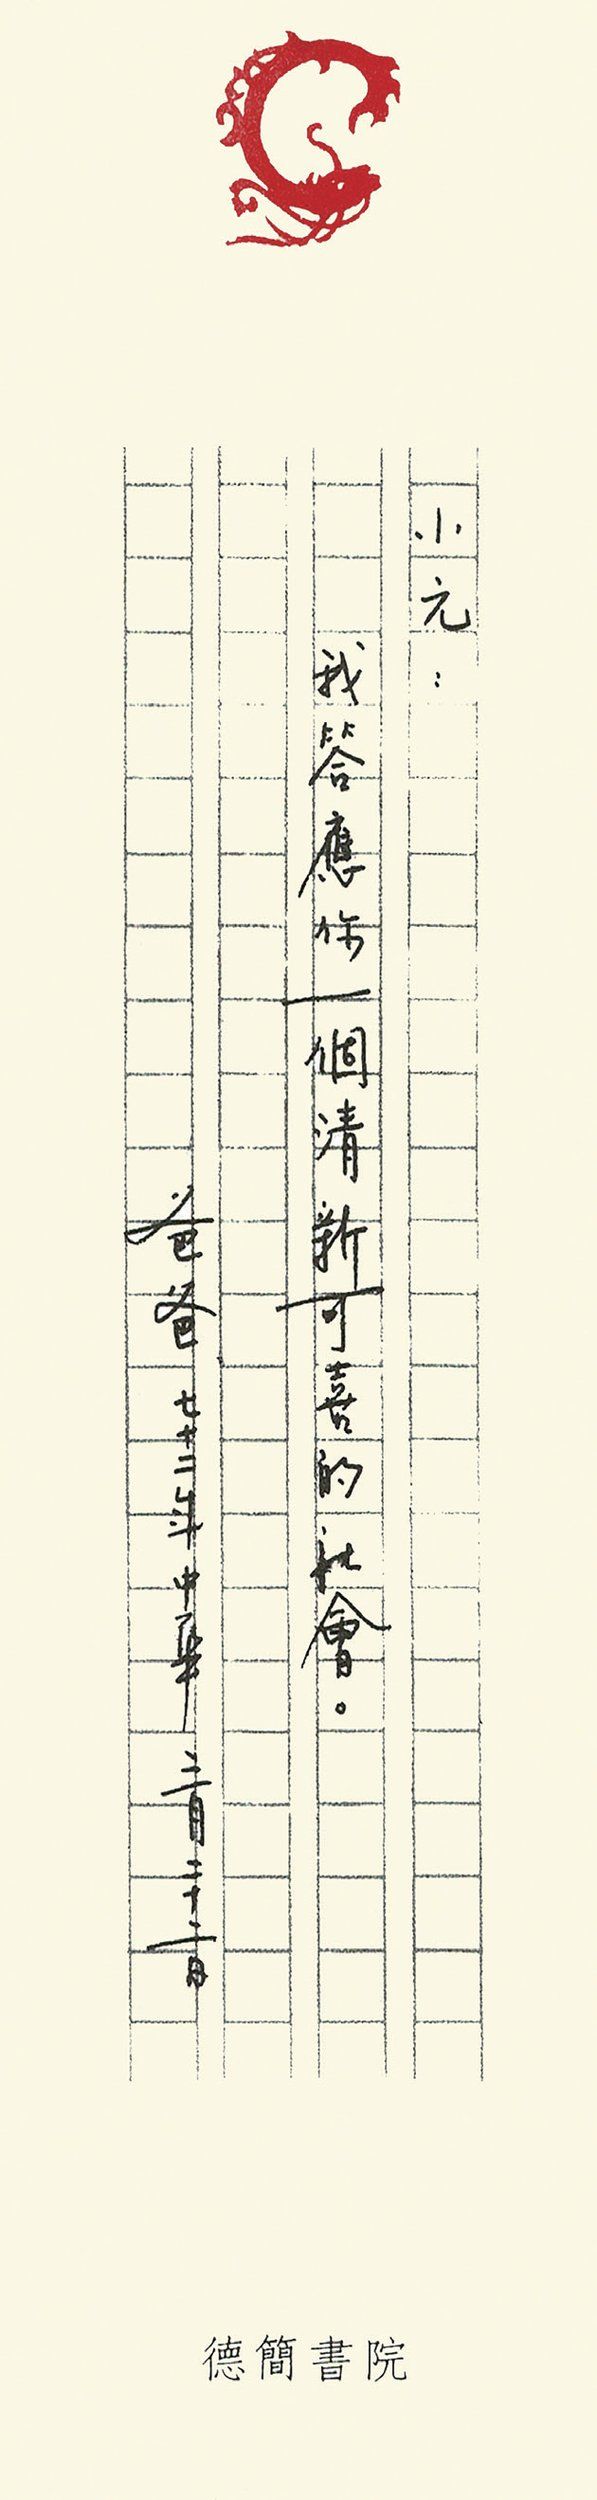 小元：
我答應你一個清新可喜的社會。
爸爸 七十二年中華 三月二十二日
德簡書院